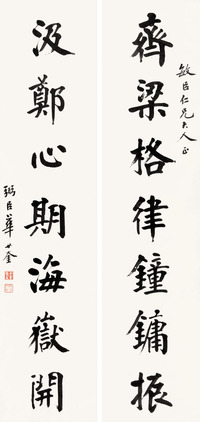 敏臣仁兄大人正
齊梁格律鐘鏞振
汲鄭心期海嶽開
弼臣華世奎